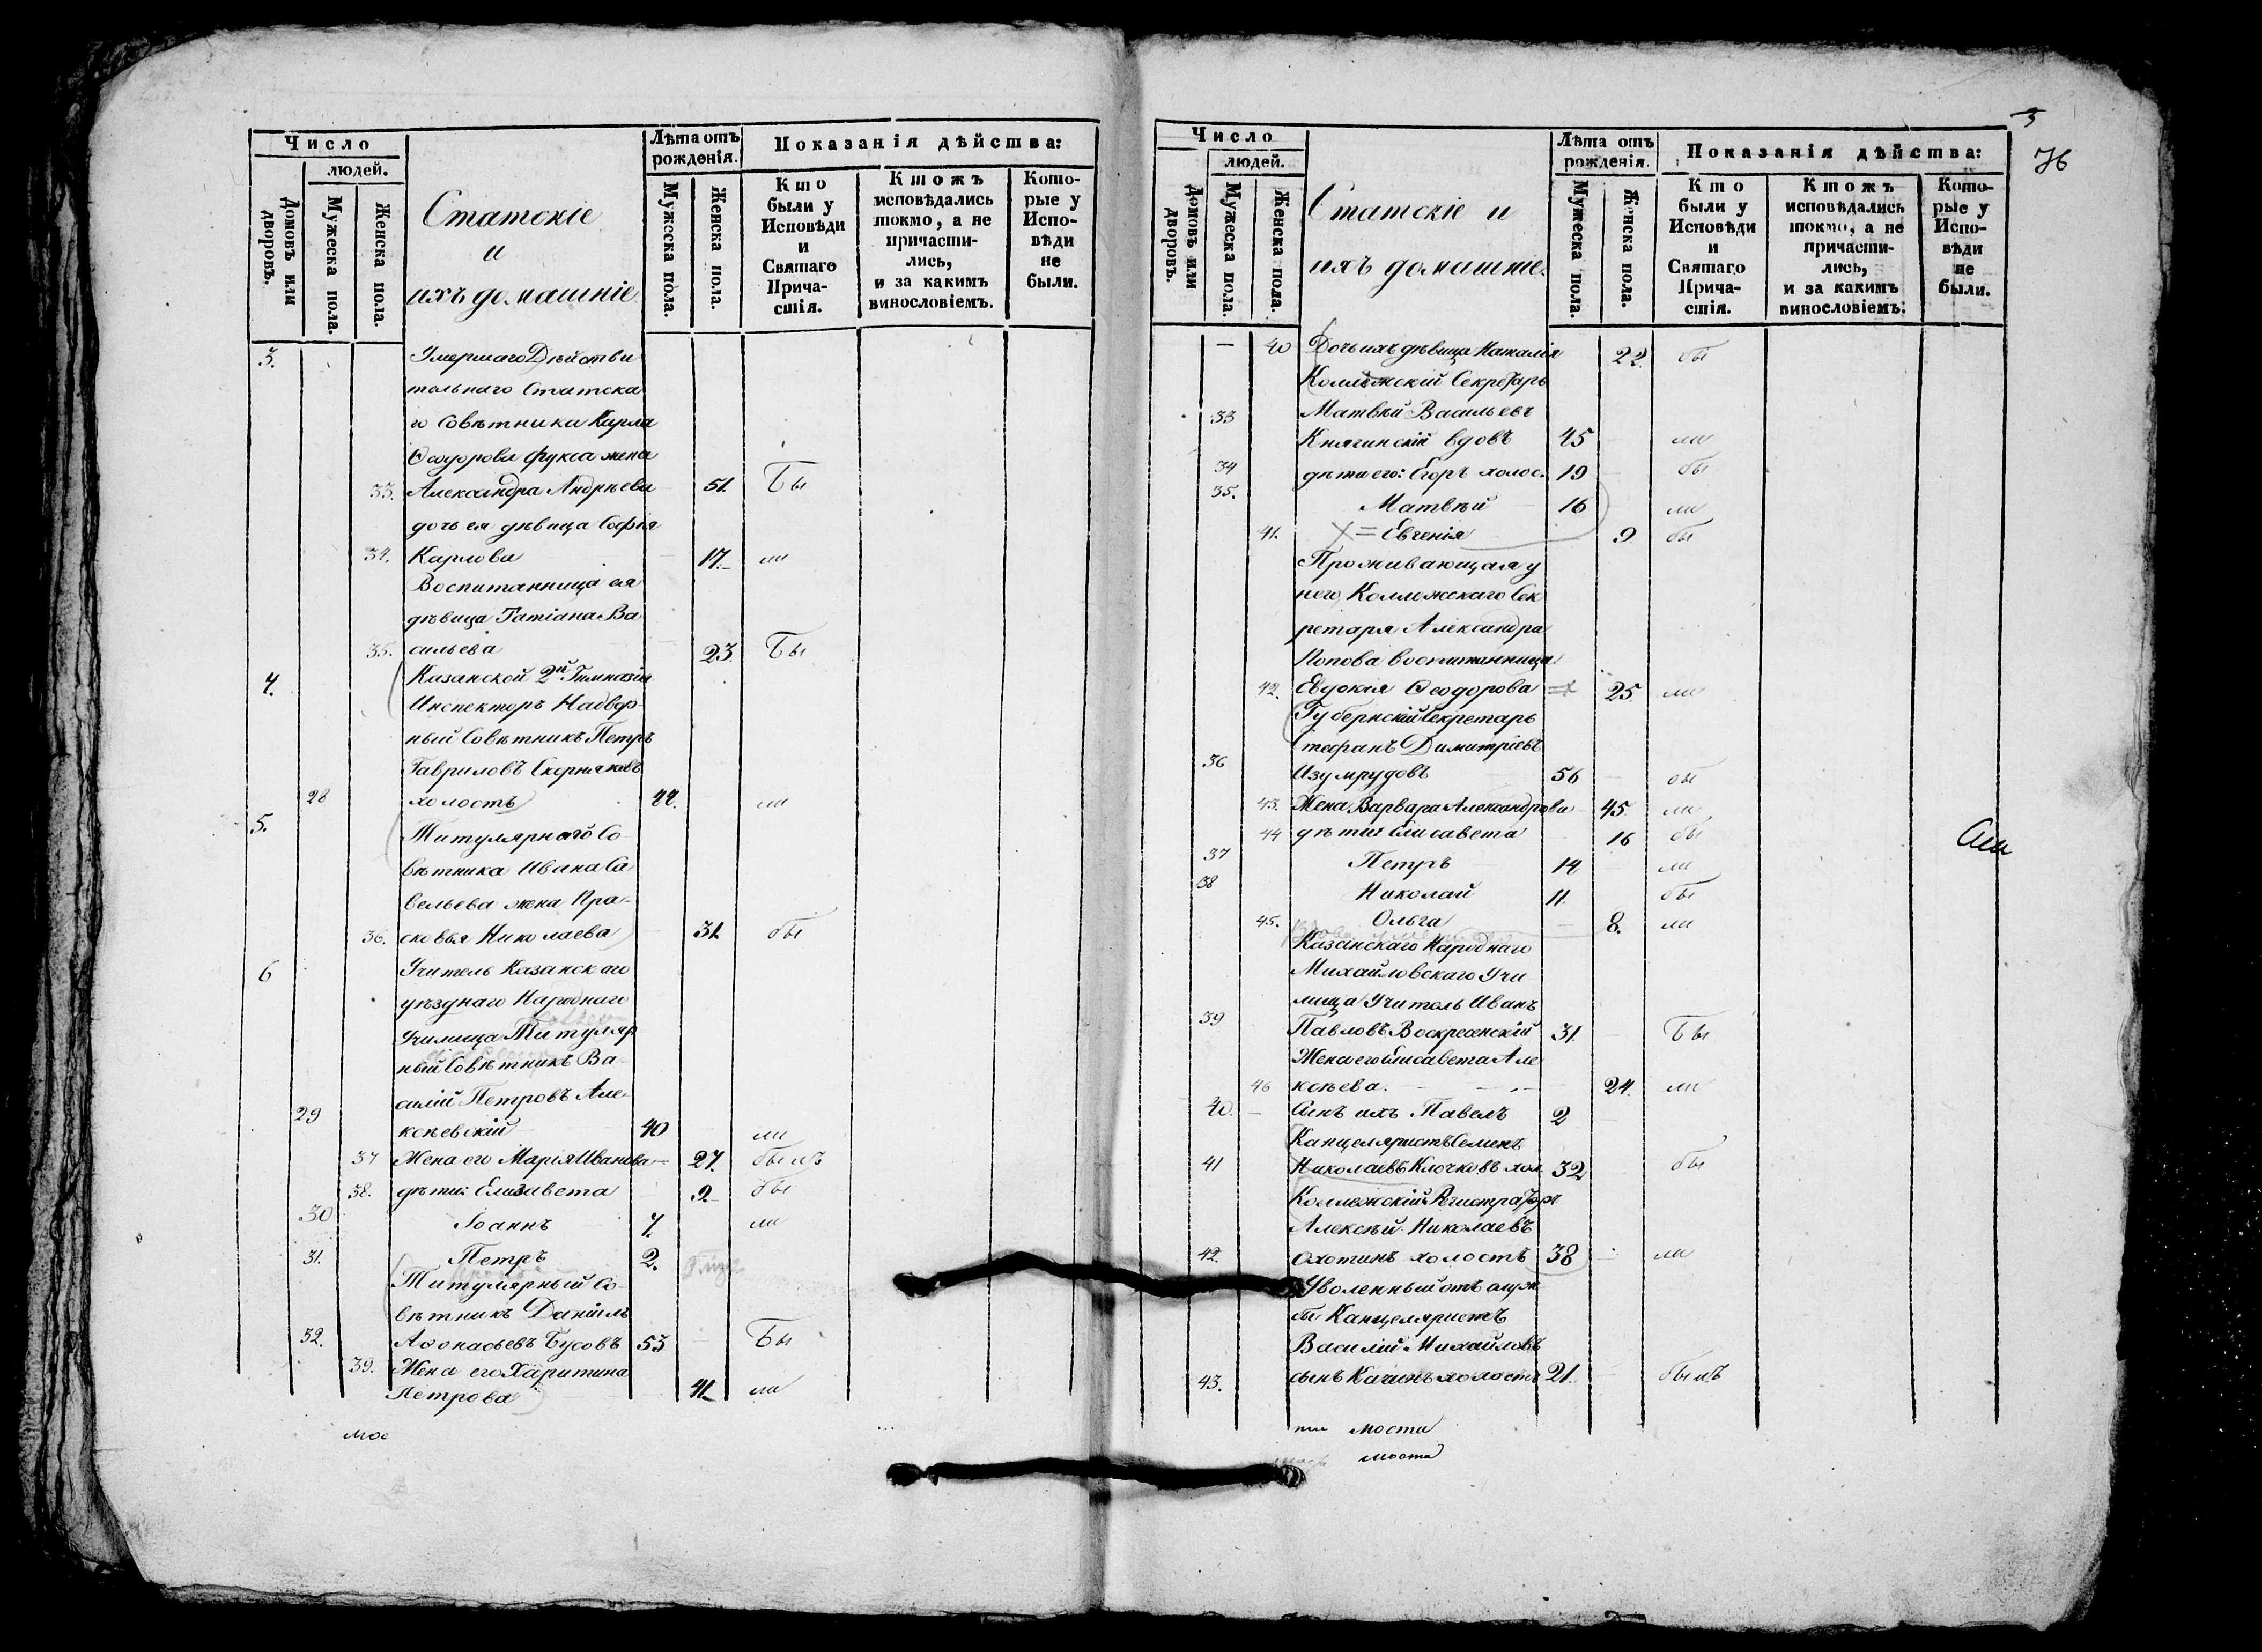 Число
людей.
Домовъ или дворовъ.
Мужеска пола.
Женска пола.
Статскіе
и
ихъ домашніе.
Лѣта отъ рожденія.
Мужеска пола.
Женска пола.
Показанія дѣйства:
Кто были у Исповѣди и Святаго Причастія.
Ктожъ исповѣдались токмо, а не причастились, и за какимъ винословіемъ.
Которые у Исповѣди не были.
3. Умершаго Дѣйстви
тельнаго Статска
го Совѣтника Карла
Ѳеодорова Фукса жена
33. Александра Андрѣева 51. Бы
дочь ея дѣвица Софія
34. Карлова 17. ли
Воспитанница ея
дѣвица Татіана Ва
35. сильева 23 Бы
4. Казанской 2й Гимназіи
Инспекторъ Надвор-
ный Совѣтникъ Петръ
Гавриловъ Скорняковъ
28 холостъ 44. ли
5. Титулярнаго Со-
вѣтника Ивана Са
вельева жена Пра-
36. сковья Николаева 31. бы
6 Учитель Казанскаго
уѣзднаго Народнаго
Училища Титуляр
ный Совѣтникъ Ва
силій Петровъ Але-
29 ксѣевскій 40 ли
37 Жена его Марія Иванова 27. былъ
38. дѣти: Елизавета 9 бы
30 Іоаннъ 7. ли
31. Петръ 2.
Титулярный Со-
вѣтникъ Даніилъ
32. Аѳонасьевъ Бусовъ 53 Бы
39. Жена его Харитина
Петрова 41 ли
мос
5
76
Число
людей.
Домовъ или дворовъ.
Мужеска пола.
Женска пола.
Статскіе и
ихъ домашніе.
Лѣта отъ рожденія.
Мужеска пола.
Женска пола.
Показанія дѣйства:
Кто были у Исповѣди и Святаго Причастія.
Ктожъ исповѣдались токмо, а не причастились, и за какимъ винословіемъ.
Которые у Исповѣди не были.
40 Дочь ихъ дѣвица Наталія 22. бы
Коллежскій Секретарь
33 Матвѣй Васильевъ
Княгинскій вдовъ 45 ли
34 дѣти его: Егоръ холос. 19 бы
35. Матвѣй 16 ли
41. Евгенія 9 бы
Проживающая у
него Коллежскаго Сек
ретаря Александра
Попова воспитанница
42. Евдокія Ѳеодорова 25 ли
Губернскій Секретарь
Стефанъ Димитріевъ
36 Изумрудовъ 56 бы
43. Жена Варвара Александрова 45. ли
44 дѣти Елисавета 16 бы
37 Петръ 14 ли
38 Николай 11. бы
45. Ольга 8. ли
Казанскаго Народнаго
Михайловскаго Учи
лища Учитель Иванъ
39 Павловъ Воскресенскій 31. Бы
Жена его Елисавета Але
46 ксѣева. 24. ли
40. Сынъ ихъ Павелъ 2
Канцеляристъ Семенъ
41 Николаевъ Клочковъ хол. 32 бы
Коллежскій Регистраторъ
Алексѣй Николаевъ
42. Охотинъ холостъ 38 ли
Уволенный отъ служ
бы Канцеляристъ
Василій Михайловъ
43. сынъ Качинъ холостъ 21. былъ
моста
моста